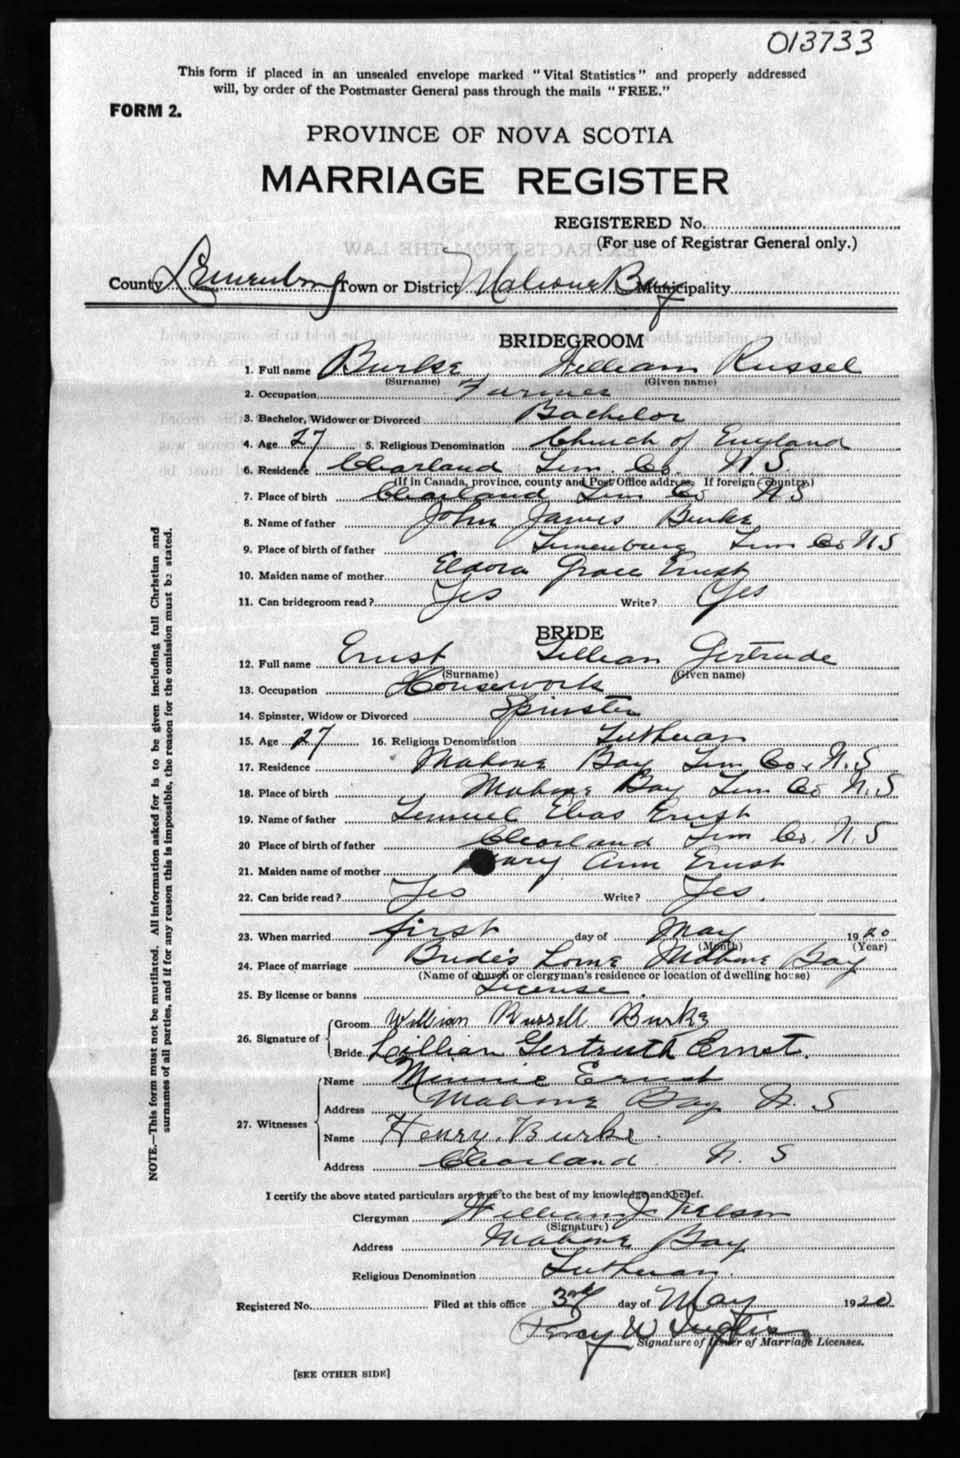 013733
This form if placed in an unsealed envelope marked "Vital Statistics" and properly addressed
will, by order of the Postmaster General pass through the mails "FREE."
FORM 2.
PROVINCE OF NOVA SCOTIA
MARRIAGE REGISTER
REGISTERED No.
(For use of Registrar General only.)
County Lunenburg Town or District Mahone Bay Municipality
BRIDEGROOM
1. Full name Burke William Russel
(Surname) (Given name)
2. Occupation Farmer
3. Bachelor, Widower or Divorced Bachelor
4. Age 27 5. Religious Denomination Church of England
6. Residence Clearland Lun. Co. N.S.
(If in Canada, province, county and Post Office address. If foreign country)
7. Place of birth Clearland Lun Co N S
8. Name of father John James Burke
9. Place of birth of father Lunenburg Lun Co N S
10. Maiden name of mother Eldora Grace Ernst
11. Can bridegroom read? Yes Write? Yes
BRIDE
12. Full name Ernst Lillian Gertrude
(Surname) (Given name)
13. Occupation Housework
14. Spinster, Widow or Divorced Spinster
15. Age 27 16. Religious Denomination Lutheran
17. Residence Mahone Bay Lun Co. N.S
18. Place of birth Mahone Bay Lun Co N.S
19. Name of father Lemuel Elias Ernst
20 Place of birth of father Clearland Lun Co. N.S
21. Maiden name of mother Mary Ann Ernst
22. Can bride read? Yes Write? Yes.
23. When married first day of May 1920
(Month) (Year)
24. Place of marriage Bride's Home Mahone Bay
(Name of church or clergyman's residence or location of dwelling house)
25. By license or banns License.
26. Signature of Groom William Russell Burke
Bride Lillian Gertruth Ernst.
27. Witnesses Name Minnie Ernst
Address Mahone Bay N. S
Name Henry Burke.
Address Clearland. N. S
I certify the above stated particulars are true to the best of my knowledge and belief.
Clergyman William J. Nelson
(Signature)
Address Mahone Bay
Religious Denomination Lutheran.
Registered No. Filed at this office 3rd day of May 1920
Percy W Inglis
Signature of Issuer of Marriage Licenses.
[SEE OTHER SIDE]
NOTE.—This form must not be mutilated. All information asked for is to be given including full Christian and
surnames of all parties, and if for any reason this is impossible, the reason for the omission must be stated.